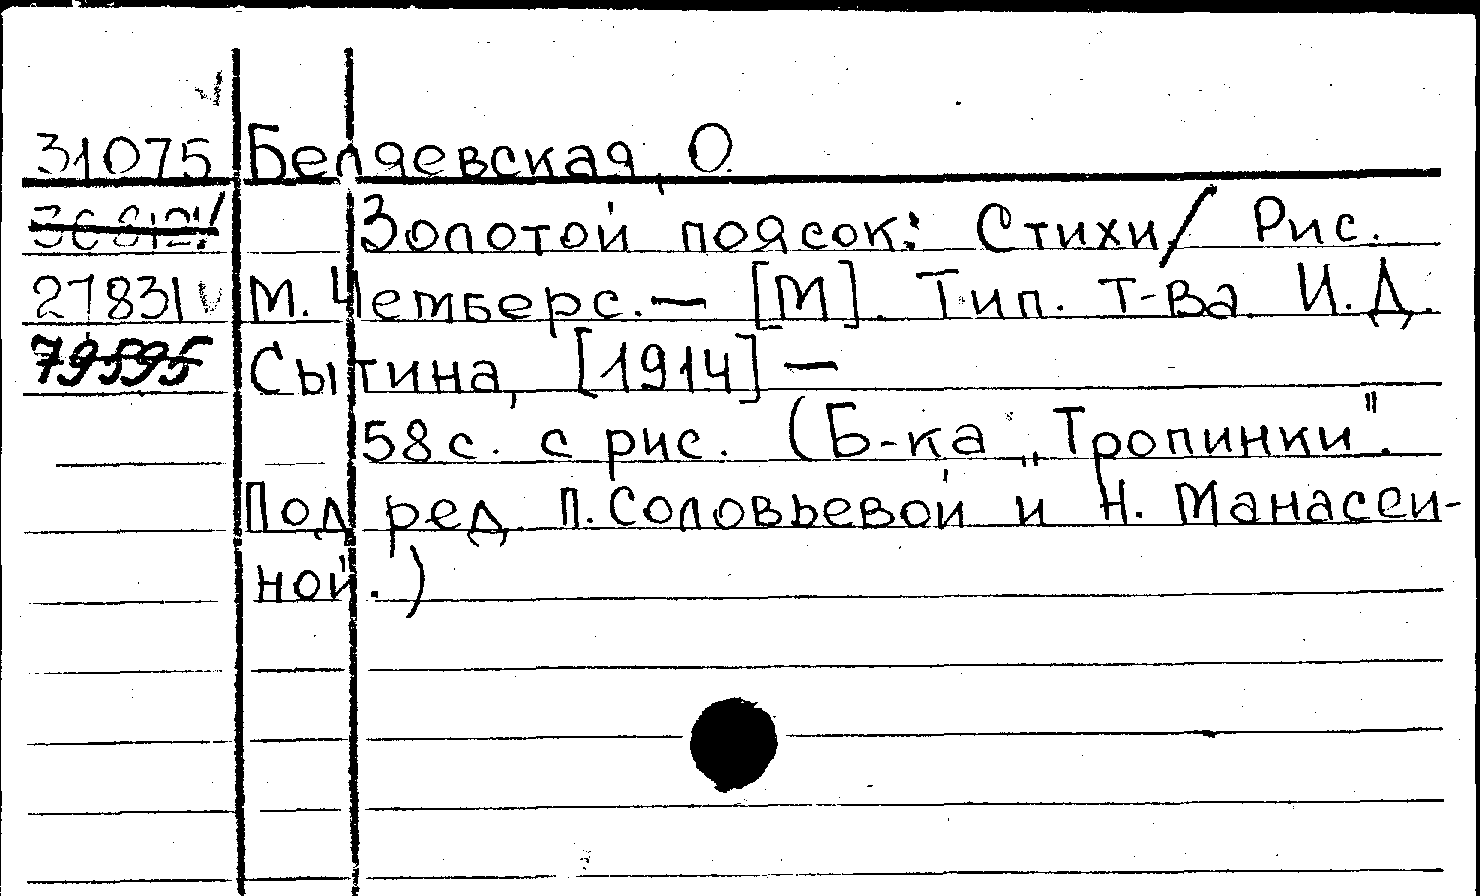 31075 Беляевская, О.
Золотой поясок: Стихи/ Рис.
27831 М. Чемберс.— [М]. Тип. т-ва И.Д.
79595 Сытина, [1914] —
58 с. с рис. (Б-ка „Тропинки".
Под ред. П. Соловьевой и Н. Манасеи-
ной.)